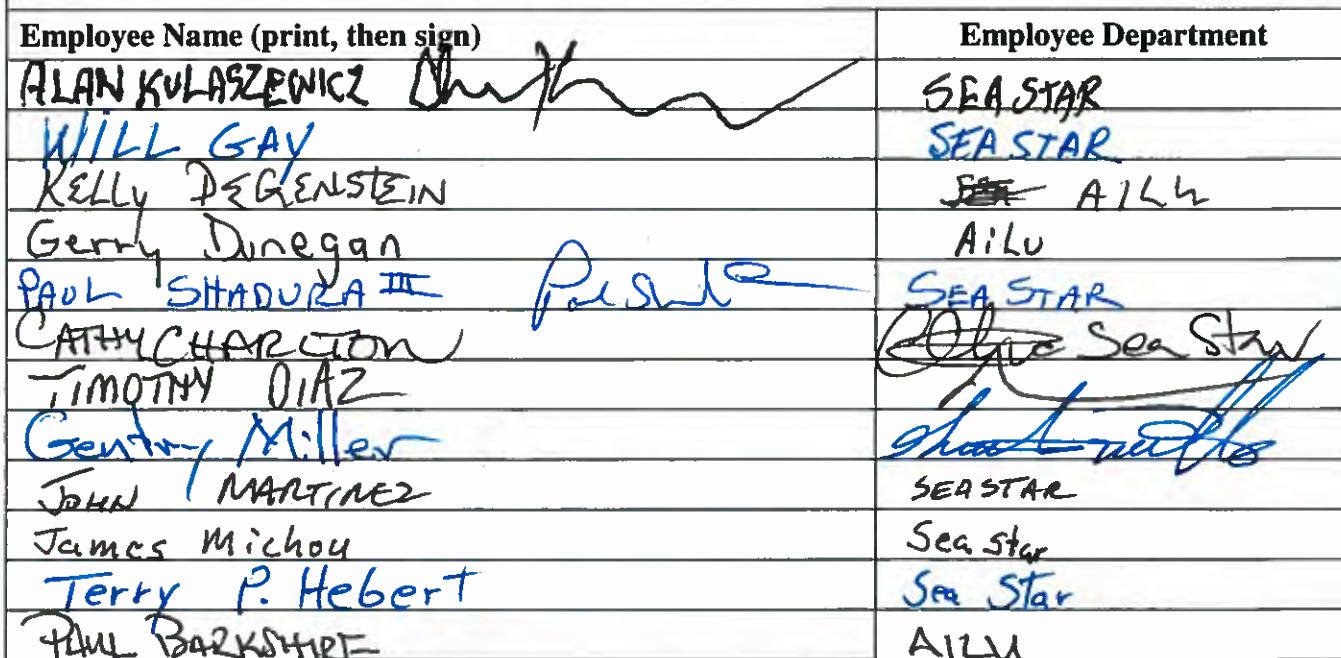 Employee Name (print, then sign) Employee Department
ALAN KULASZEWICZ SEA STAR
WILL GAY SEA STAR
KELLY DEGENSTEIN AILU
Gerry Dunegan AiLU
PAUL SHADURA III SEA STAR
CATHY CHARLTON Sea Star
TIMOTHY DIAZ
Gentry Miller
JOHN MARTINEZ SEASTAR
James Michou Sea star
Terry P. Hebert Sea Star
PAUL BARKSHIRE AILU